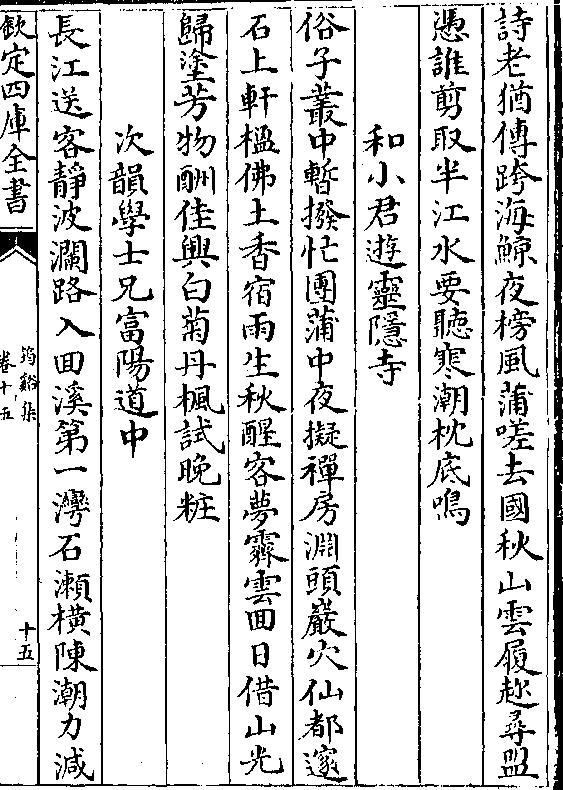 詩老猶傳跨海鯨夜榜風蒲嗟去國秋山雲履趂尋盟
憑誰剪取半江水要聽寒潮枕底鳴
和小君遊靈隱寺
俗子叢中暫撥忙團蒲中夜擬禪房淵頭巖穴仙都邃
石上軒楹佛土香宿雨生秋醒客夢霽雲囬日借山光
歸塗芳物酬佳興白菊丹楓試晚粧
次韻學士兄富陽道中
長江送客靜波瀾路入囬溪第一灣石瀬橫陳潮力減
欽定四庫全書
筠谿集
卷十五
十五